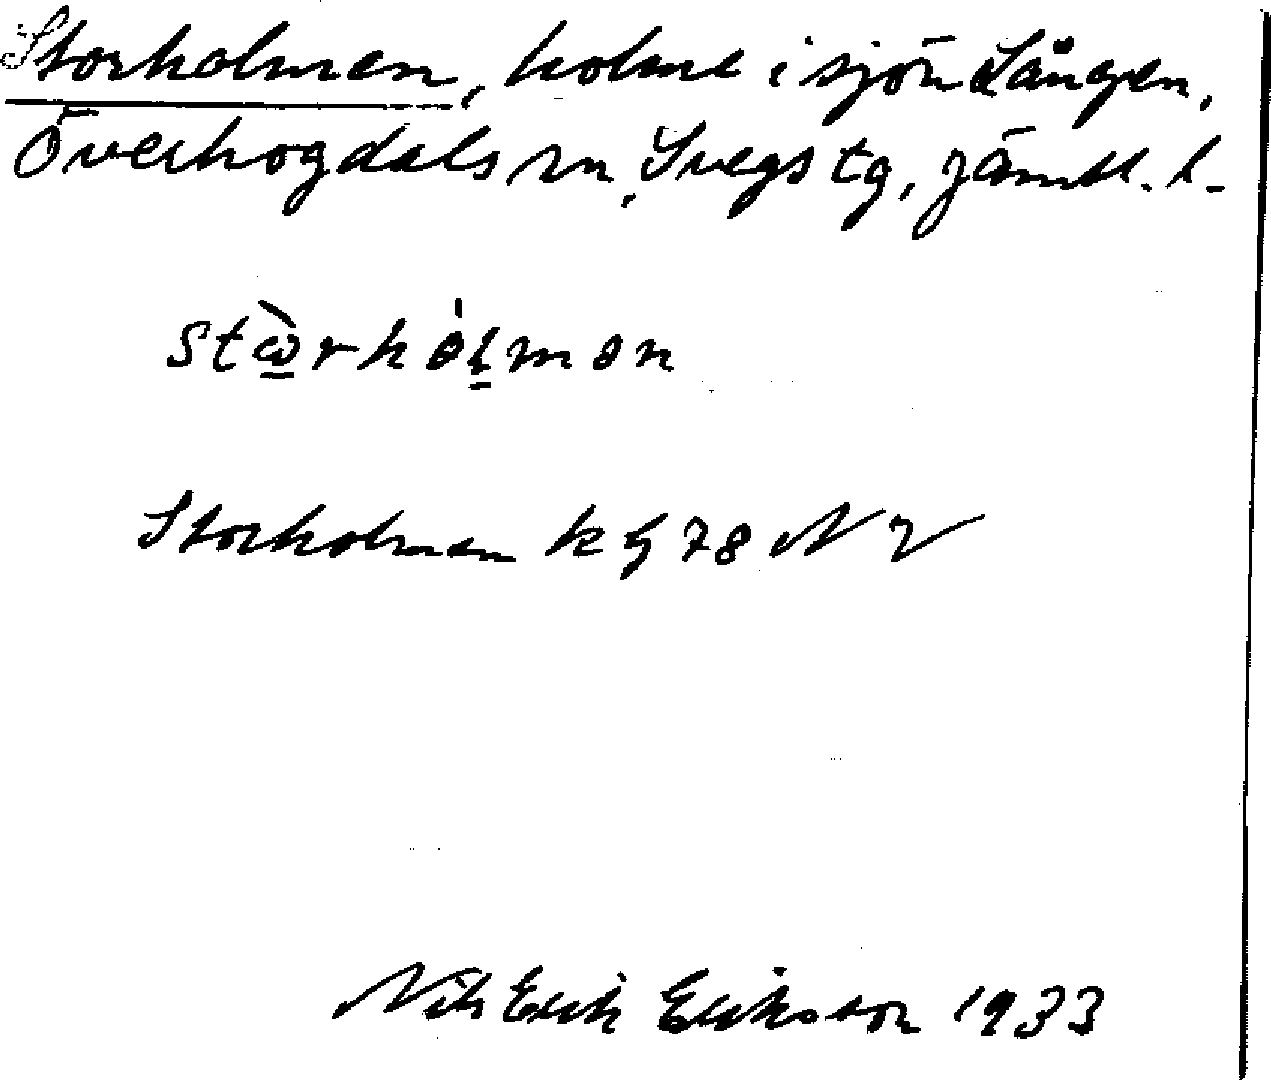 Storholmen, holme i sjön Lången,
Överhogdals sn, Svegs tg, Jämtl. l.
stὼ̱rhòḻmən
Storholmen kg 78 NV
Nils Erik Eriksson 1933